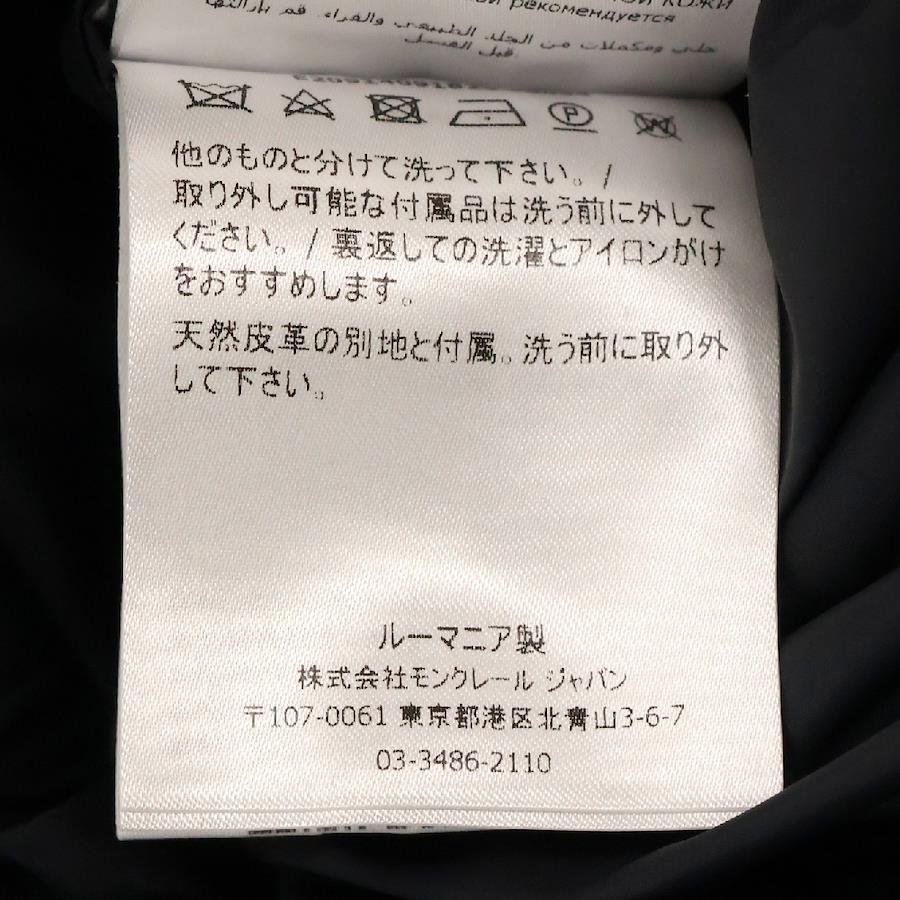 рекомендуется
حلي ومكملات من الجلد الطبيعي والفراء. قم بازالتها
قبل الغسل.
P
W
他のものと分けて洗って下さい。/
取り外し可能な付属品は洗う前に外して
ください。/ 裏返しての洗濯とアイロンがけ
をおすすめします。
天然皮革の別地と付属。洗う前に取り外
して下さい。
ルーマニア製
株式会社モンクレール ジャパン
〒107-0061 東京都港区北青山3-6-7
03-3486-2110